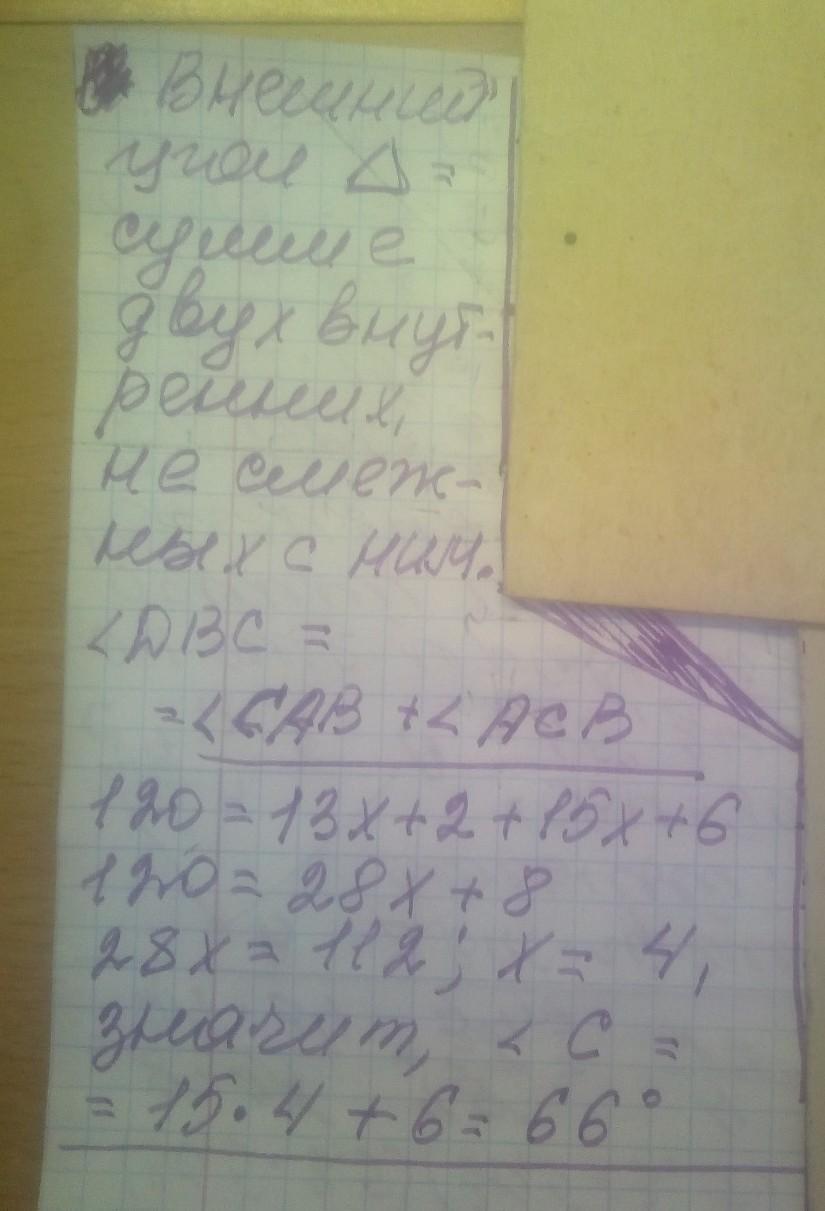 Внешний
угол △ =
сумме
двух внут-
ренних,
не смеж-
ных с ним.
<DBC =
= <CAB + < ACB
120 = 13x + 2 + 15x + 6
120 = 28x + 8
28x = 112; x = 4,
значит, < C =
= 15 · 4 + 6 = 66°